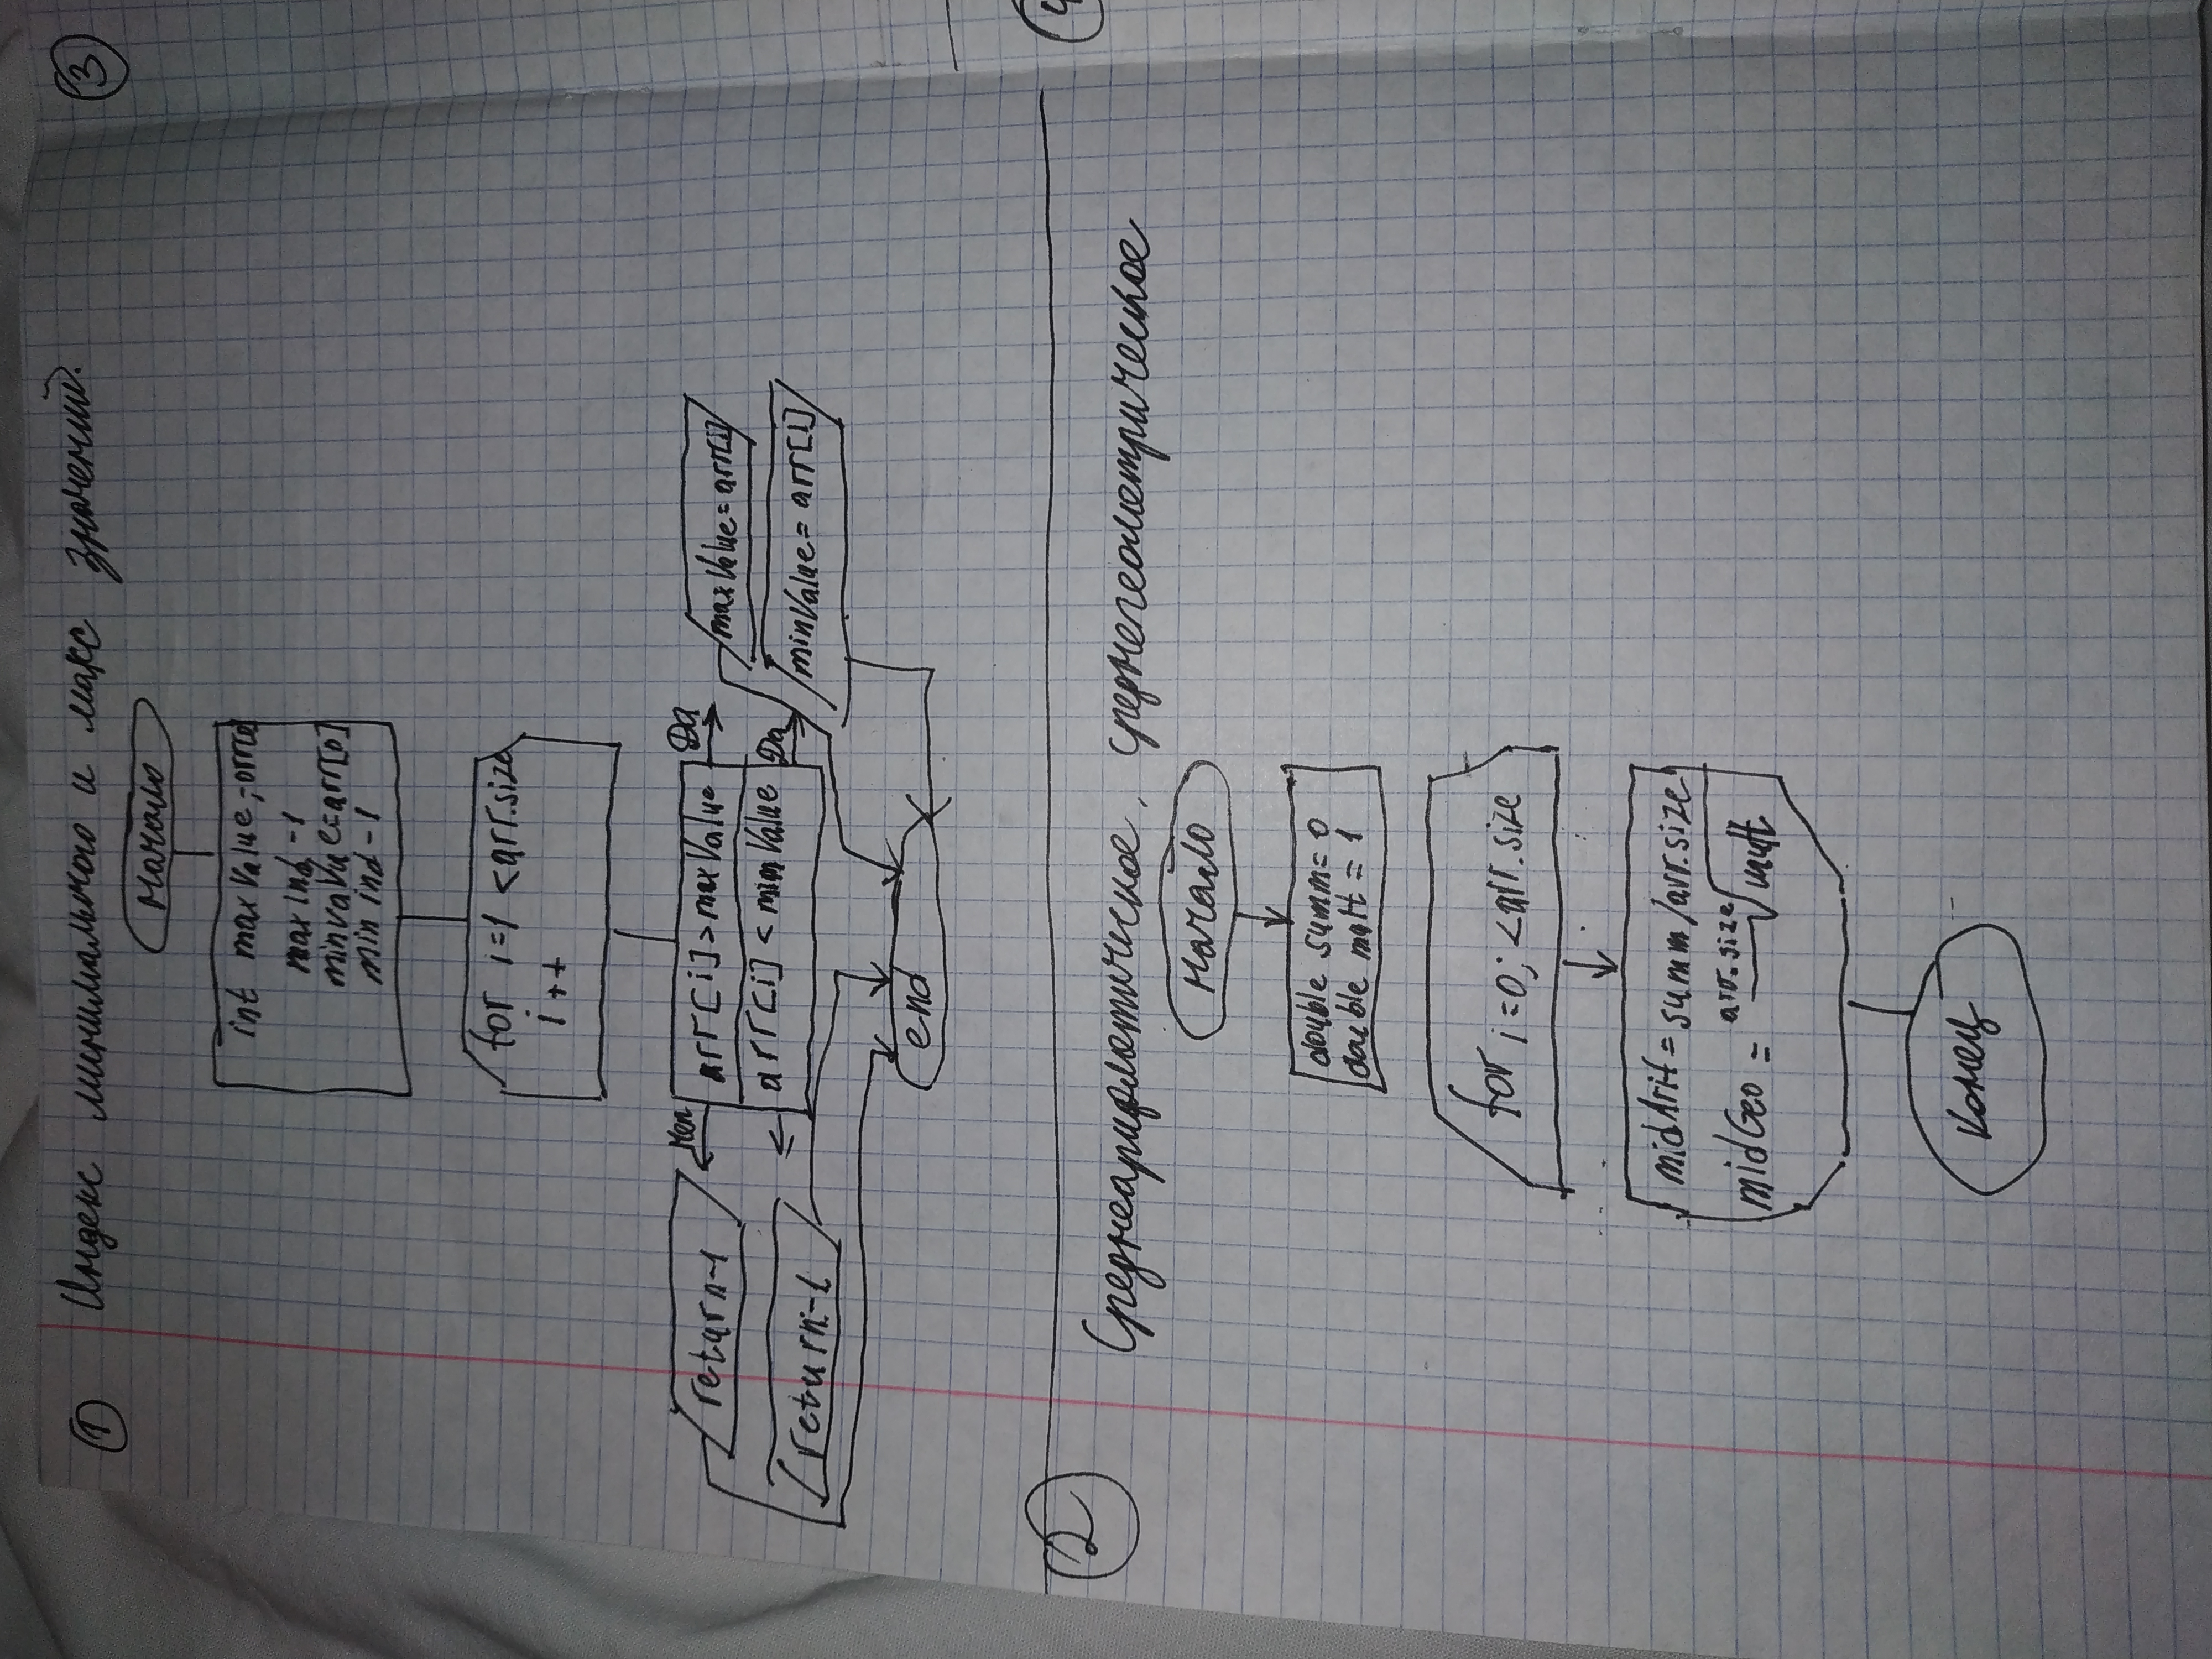 1 Индекс минимального и макс значений.
3
Начало
int maxValue,-arr[0]
max ind -1
minvalue=arr[0]
min ind -1
for i=1 <arr.size
i++
Нет
Да
return-1
arr[i]>maxValue
maxValue=arr[i]
arr[i]<minValue
Да
return-1
minValue=arr[i]
end
2
4
Среднеарифметическое, среднегеометрическое
Начало
double summ=0
double mult=1
for i=0; <arr.size
midArit=summ/arr.size
midGeo = arr.size√mult
Конец